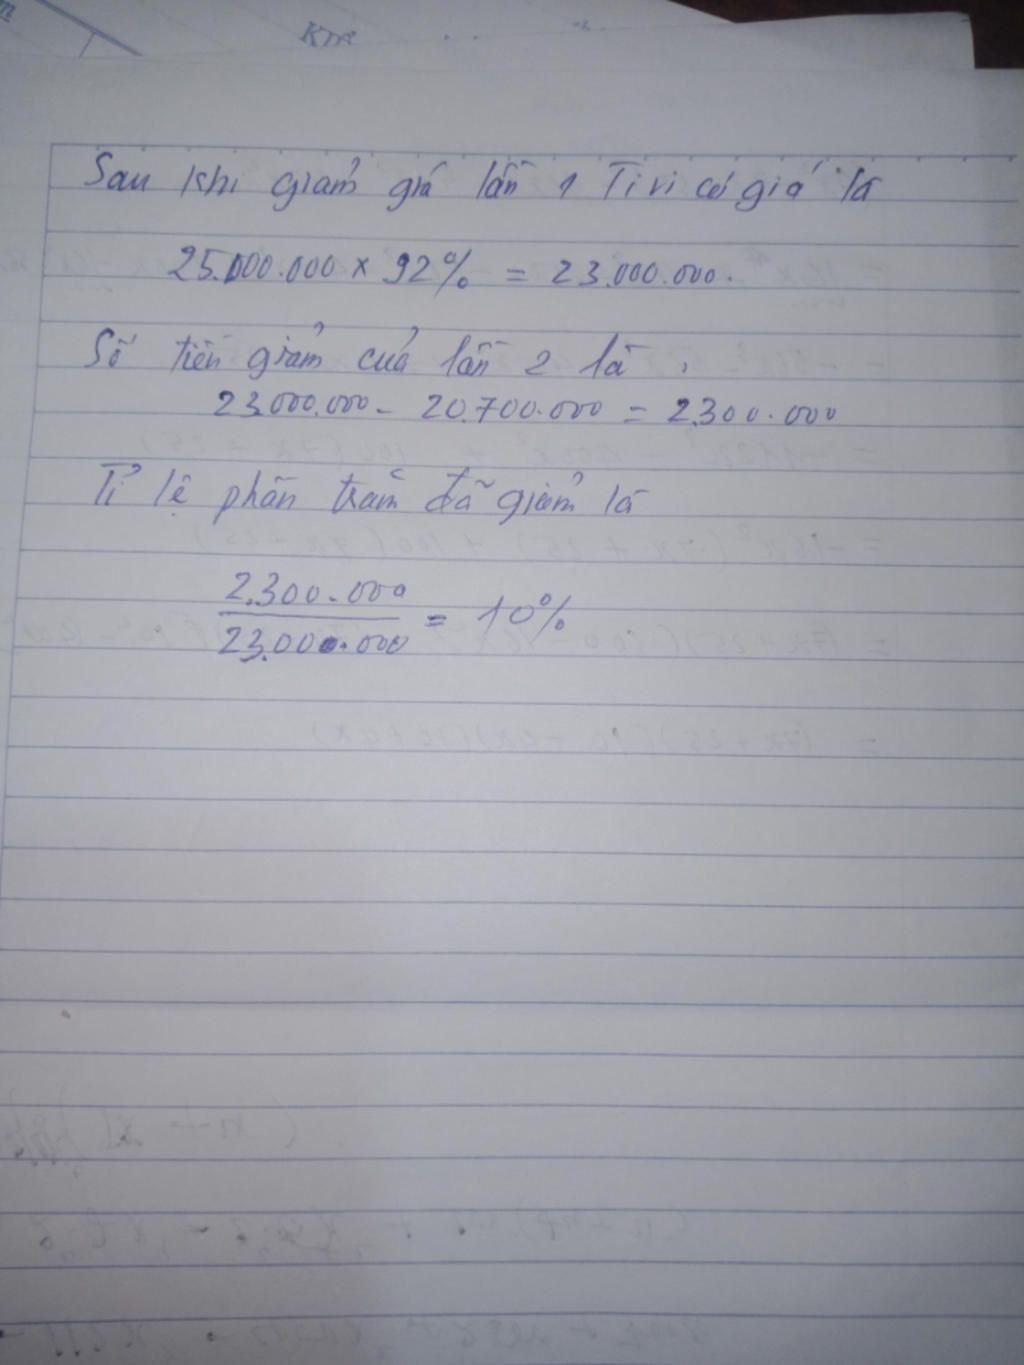 Sau khi giảm giá lần 1 Ti vi có giá là
25.000.000 x 92% = 23.000.000.
Số tiền giảm của lần 2 là
23.000.000 - 20.700.000 = 2.300.000
Tỉ lệ phần trăm đã giảm là
2.300.000
23.000.000 = 10%